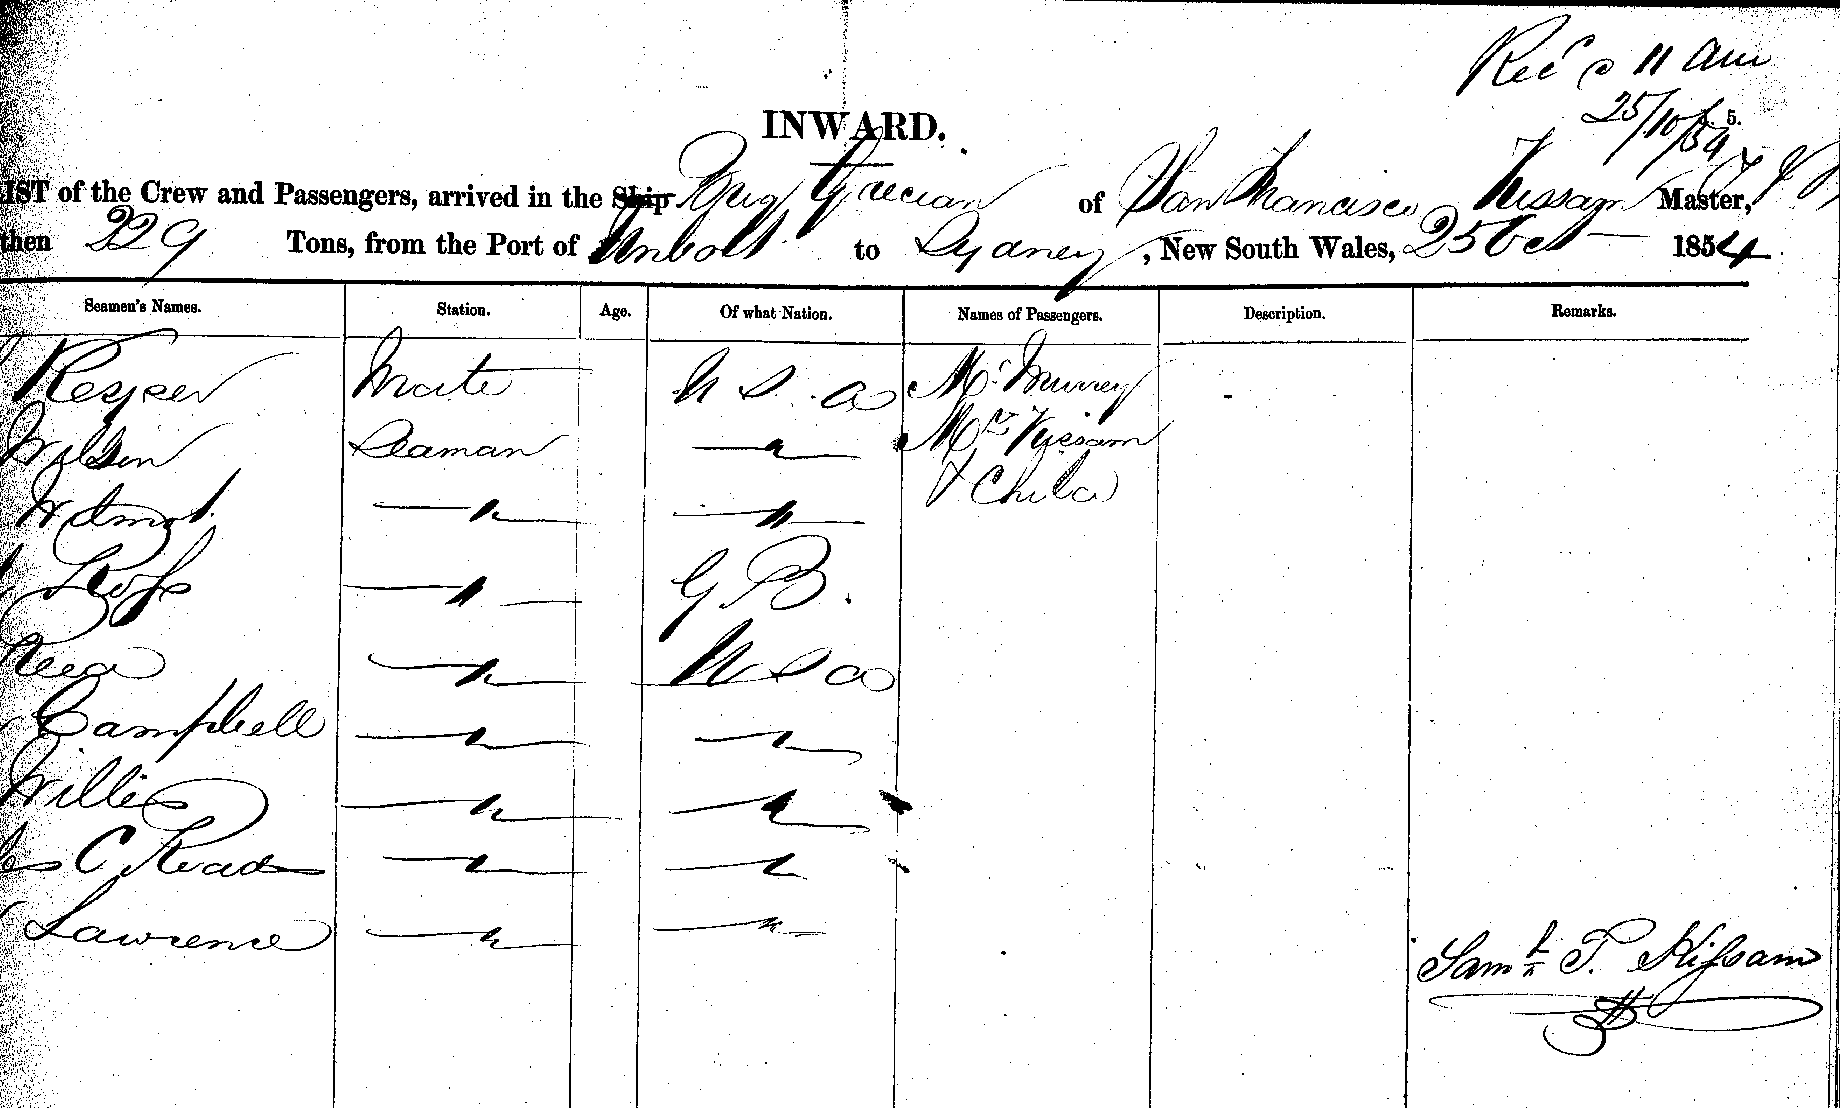 Rec'd @ 11 am
25/10/54
5.
INWARD.
LIST of the Crew and Passengers, arrived in the Ship Brig Grecian of San Francisco Kissam Master,
then 229 Tons, from the Port of Humbolt to Sydney, New South Wales, 25 Oct 1854
Seamen's Names. Station. Age. Of what Nation. Names of Passengers. Description. Remarks.
Keyser Mate U S A Mr. Murrey
Wilson Seaman " Mrs Kissam
" " & Child
Ross " G B.
Reed " U S A
Campbell " "
Willis " "
C Read " "
Lawrence " "
Saml P. Kissam